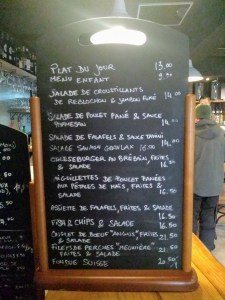 PLAT DU JOUR 13.00
MENU ENFANT 9.50
SALADE DE CROUSTILLANTS
DE REBLOCHON & JAMBON FUMÉ 14.00
SALADE DE POULET PANÉ & SAUCE
PARMESAN 14.00
SALADE DE FALAFELS & SAUCE TAHINI 14.00
SALADE SAUMON GRAVLAX 16.00
CHEESEBURGER AU BRÉSIEN, FRITES
& SALADE 16.50
AIGUILLETTES DE POULET PANÉES
AUX PÉTALES DE MAÏS, FRITES &
SALADE 16.50
ASSIETTE DE FALAFELS, FRITES & SALADE
16.50
FISH & CHIPS & SALADE 16.50
BŒUF "ANGUS" FRITES
& SALADE 21.50
FILETS DE PERCHES "MEUNIÈRE"
FRITES & SALADE 21.50
FONDUE SUISSE 20.50